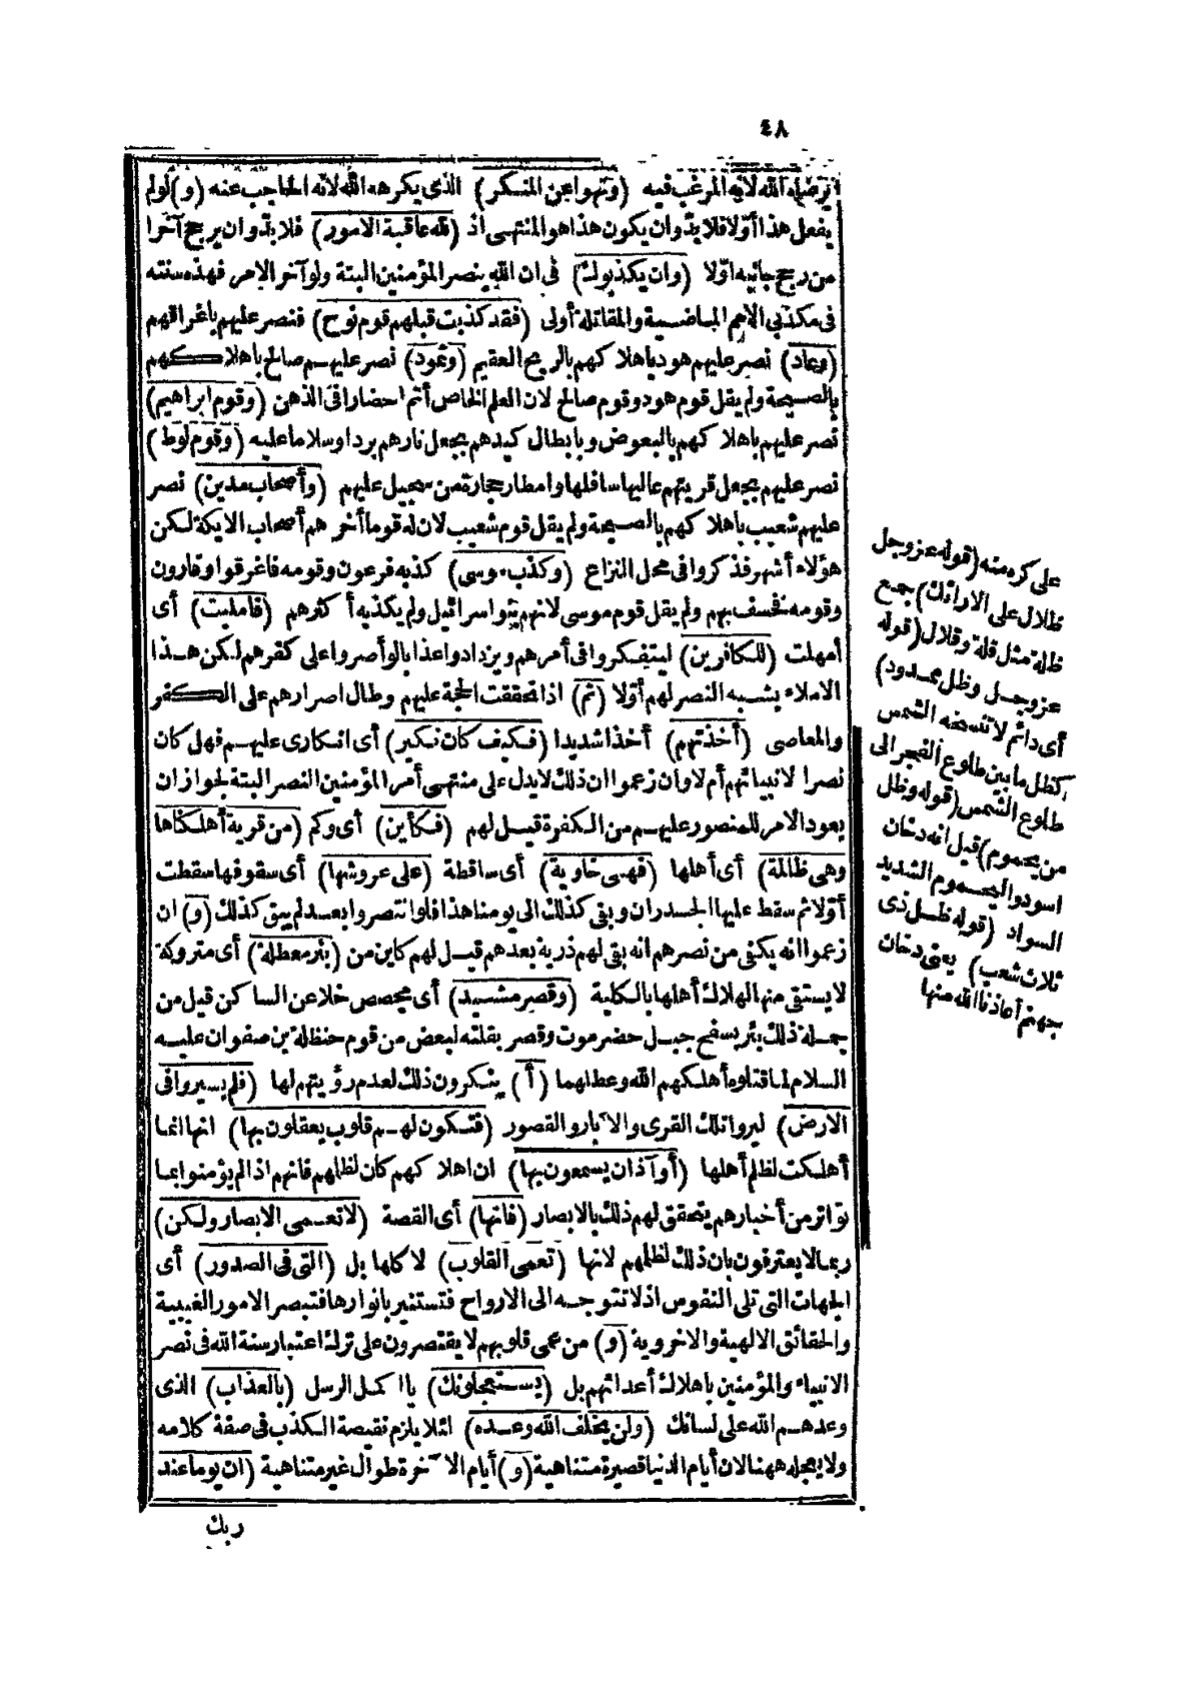 ٤٨
يرضاه الله لانه المرغب فيه (ونهوا عن المنكر) الذى يكرهه الله لانه الحاجب عنه (و) لو لم
يفعل هذا أولا فلا بد وان يكون هذا هو المنتهى اذ (لله عاقبة الامور) فلا بد وان يرجح آخرا
من رجح جانبه اولا (وان يكذبوك) فى ان الله ينصر المؤمنين البتة ولو آخر الامر فهذه سنته
فى مكذبى الامم الماضية والمقاتلة أولى (فقد كذبت قبلهم قوم نوح) فنصر عليهم باغراقهم
(وعاد) نصر عليهم هود باهلاكهم بالريح العقيم (وثمود) نصر عليهم صالح باهلاكهم
بالصيحة ولم يقل قوم هود وقوم صالح لان العلم الخاص أتم احضارا فى الذهن (وقوم ابراهيم)
نصر عليهم باهلاكهم بالبعوض وبابطال كيدهم بجعل نارهم بردا وسلاما عليه (وقوم لوط)
نصر عليهم بجعل قريتهم عاليها سافلها وامطار حجارة من سجيل عليهم (وأصحاب مدين) نصر
عليهم شعيب باهلاكهم بالصيحة ولم يقل قوم شعيب لان له قوما أخر هم أصحاب الايكة لكن
هؤلاء أشهر فذكروا فى محل النزاع (وكذب موسى) كذبه فرعون وقومه فاغرقوا وقارون
وقومه فخسف بهم ولم يقل قوم موسى لانهم بنو اسرائيل ولم يكذبه أكثرهم (فامليت) أى
أمهلت (للكافرين) ليتفكروا فى أمرهم ويزدادوا عذابا لو أصروا على كفرهم لكن هذا
الاملاء يشبه النصر لهم أولا (ثم) اذا تحققت الحجة عليهم وطال اصرارهم على الكفر
والمعاصى (أخذتهم) أخذا شديدا (فكيف كان نكير) أى انكارى عليهم فهل كان
نصرا لانبيائهم أم لا وان زعموا ان ذلك لا يدل على منتهى أمر المؤمنين النصر البتة لجواز ان
يعود الامر للمنصور عليهم من الكفرة قيل لهم (فكأين) أى وكم (من قرية أهلكناها
وهى ظالمة) أى أهلها (فهى خاوية) أى ساقطة (على عروشها) أى سقوفها سقطت
أولا ثم سقط عليها الجدران وبقى كذلك الى يومنا هذا فلو انتصروا بعد لم يبق كذلك (و) ان
زعموا انه يكفى من نصرهم انه بقى لهم ذرية بعدهم قيل لهم كاين من (بئر معطلة) أى متروكة
لا يستقى منها لهلاك أهلها بالكلية (وقصر مشيد) أى مجصص خلا عن الساكن قيل من
جملة ذلك بئر بسفح جبل حضرموت وقصر بقلته لبعض من قوم حنظلة بن صفوان عليه
السلام لما قتلوه أهلكهم الله وعطلهما (أ) ينكرون ذلك لعدم رؤيتهم لها (فلم يسيروا فى
الارض) ليروا تلك القرى والآبار والقصور (فتكون لهم قلوب يعقلون بها) انها انما
أهلكت لظلم أهلها (أو آذان يسمعون بها) ان اهلاكهم كان لظلمهم فانهم اذا لم يؤمنوا بما
تواتر من أخبارهم يتحقق لهم ذلك بالابصار (فانها) أى القصة (لا تعمى الابصار ولكن)
ربما لا يعترفون بان ذلك لظلمهم لانها (تعمى القلوب) لا كلها بل (التى فى الصدور) أى
الجهات التى تلى النفوس اذ لا تتوجه الى الارواح فتستنير بانوارها فتبصر الامور الغيبية
والحقائق الالهية والاخروية (و) من عمى قلوبهم لا يقتصرون على ترك اعتبار سنة الله فى نصر
الانبياء والمؤمنين باهلاك أعدائهم بل (يستعجلونك) يا اكمل الرسل (بالعذاب) الذى
وعدهم الله على لسانك (ولن يخلف الله وعده) لئلا يلزم نقيصة الكذب فى صفة كلامه
ولا يعجله ههنا لان أيام الدنيا قصيرة متناهية (و) أيام الآخرة طوال غير متناهية (ان يوما عند
ربك
على كره منه (قوله عز وجل
ظلال على الارائك) جمع
ظلة مثل قلة وقلال (قوله
عز وجل وظل ممدود)
أى دائم لا تنسخه الشمس
كظل ما بين طلوع الفجر الى
طلوع الشمس (قوله وظل
من يحموم) قيل انه دخان
اسود واليحموم الشديد
السواد (قوله ظل ذى
ثلاث شعب) يعنى دخان
جهنم أعاذنا الله منها